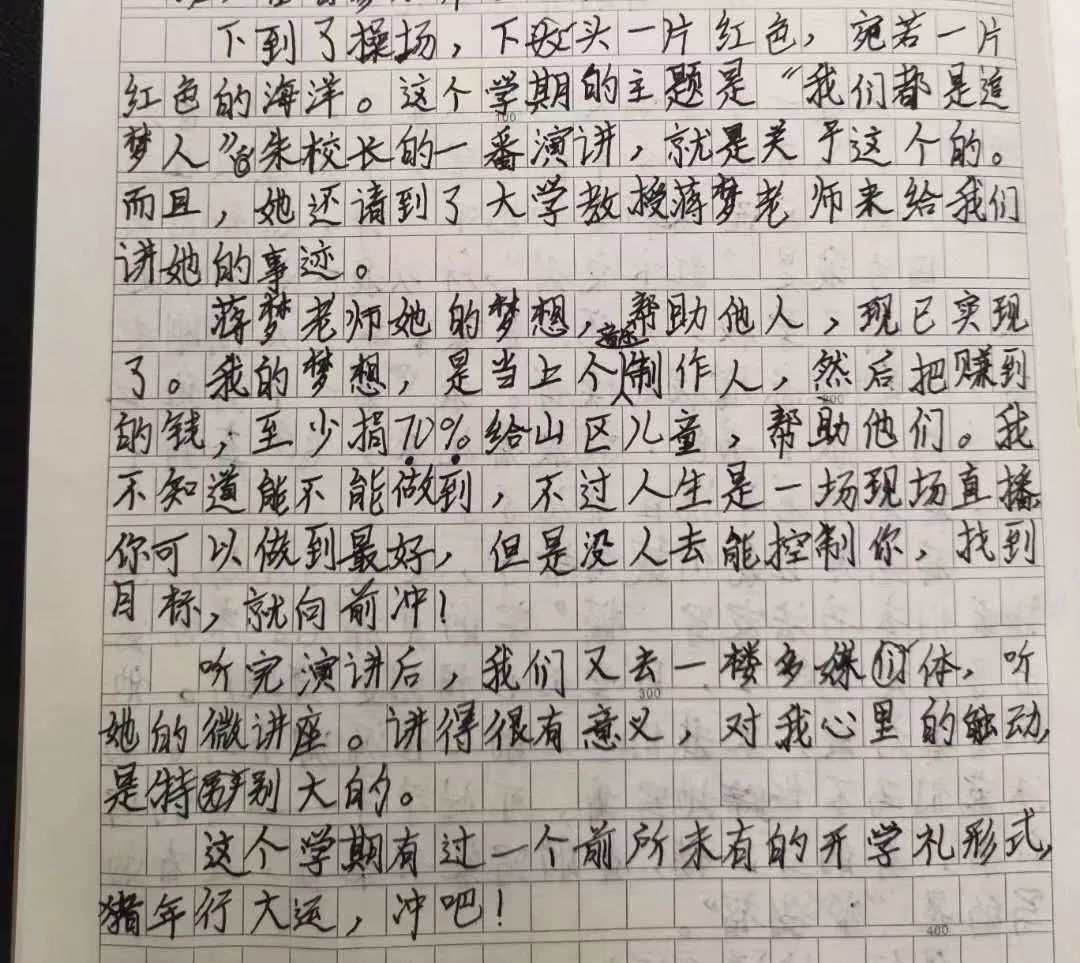 下到了操场，下头一片红色，宛若一片
红色的海洋。这个学期的主题是“我们都是追
梦人”。朱校长的一番演讲，就是关于这个的。
而且，她还请到了大学教授蒋梦老师来给我们
讲她的事迹。
蒋梦老师她的梦想，帮助他人，现已实现
了。我的梦想，是当上个音乐制作人，然后把赚到
的钱，至少捐70%给山区儿童，帮助他们。我
不知道能不能做到，不过人生是一场现场直播。
你可以做到最好，但是没人去能控制你，找到
目标，就向前冲！
听完演讲后，我们又去一楼多媒体，听
300
她的微讲座。讲得很有意义，对我心里的触动，
是特别大的。
这个学期有过一个前所未有的开学礼形式，
猪年行大运，冲吧！
400